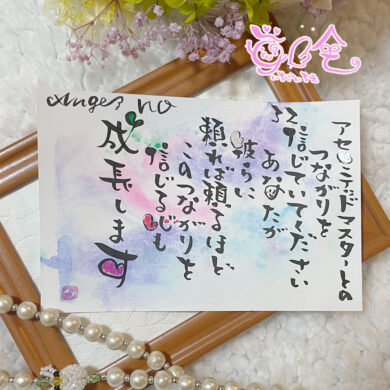 Angel no
32
アセンデッドマスターとの
つながりを
信じていてください
あなたが
彼らに
頼れば頼るほど
このつながりを
信じる心も
成長します